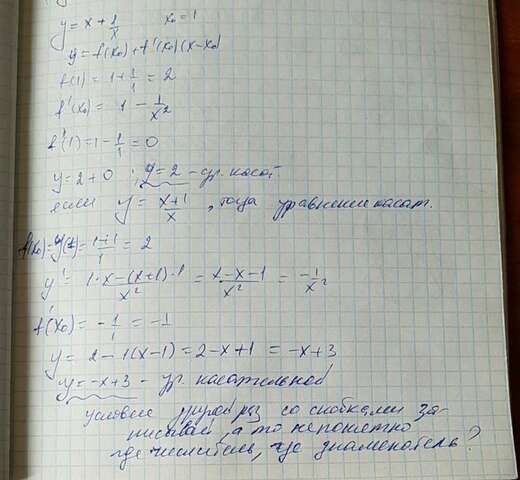 y = x + 1/x    x₀ = 1
y = f(x₀) + f'(x₀)(x - x₀)
f(1) = 1 + 1/1 = 2
f'(x₀) = 1 - 1/x²
f'(1) = 1 - 1/1 = 0
y = 2 + 0 ; y = 2 - ур. касат.
если y = (x+1)/x , тогда уравнение касат.
f(x₀) = y(1) = (1+1)/1 = 2
y' = (1·x - (x+1)·1)/x² = (x-x-1)/x² = -1/x²
f'(x₀) = -1/1 = -1
y = 2 - 1(x-1) = 2 - x + 1 = -x + 3
y = -x + 3 - ур. касательной
условие другой раз со скобками за-
писывай, а то непонятно
где числитель, где знаменатель?